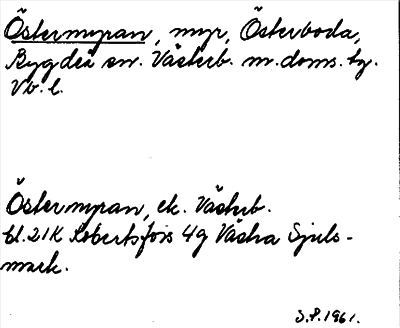 Östermyran, myr, Österboda,
Bygdeå sn. Västerb. m. doms. tg.
Vb. l.
Östermyran, ek. Västerb.
bl. 21K Robertsfors 4g Västra Sjuls-
mark.
3.8.1961.